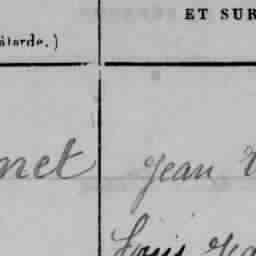 ET SUR
bâtarde.)
net Jean
Louis Jea